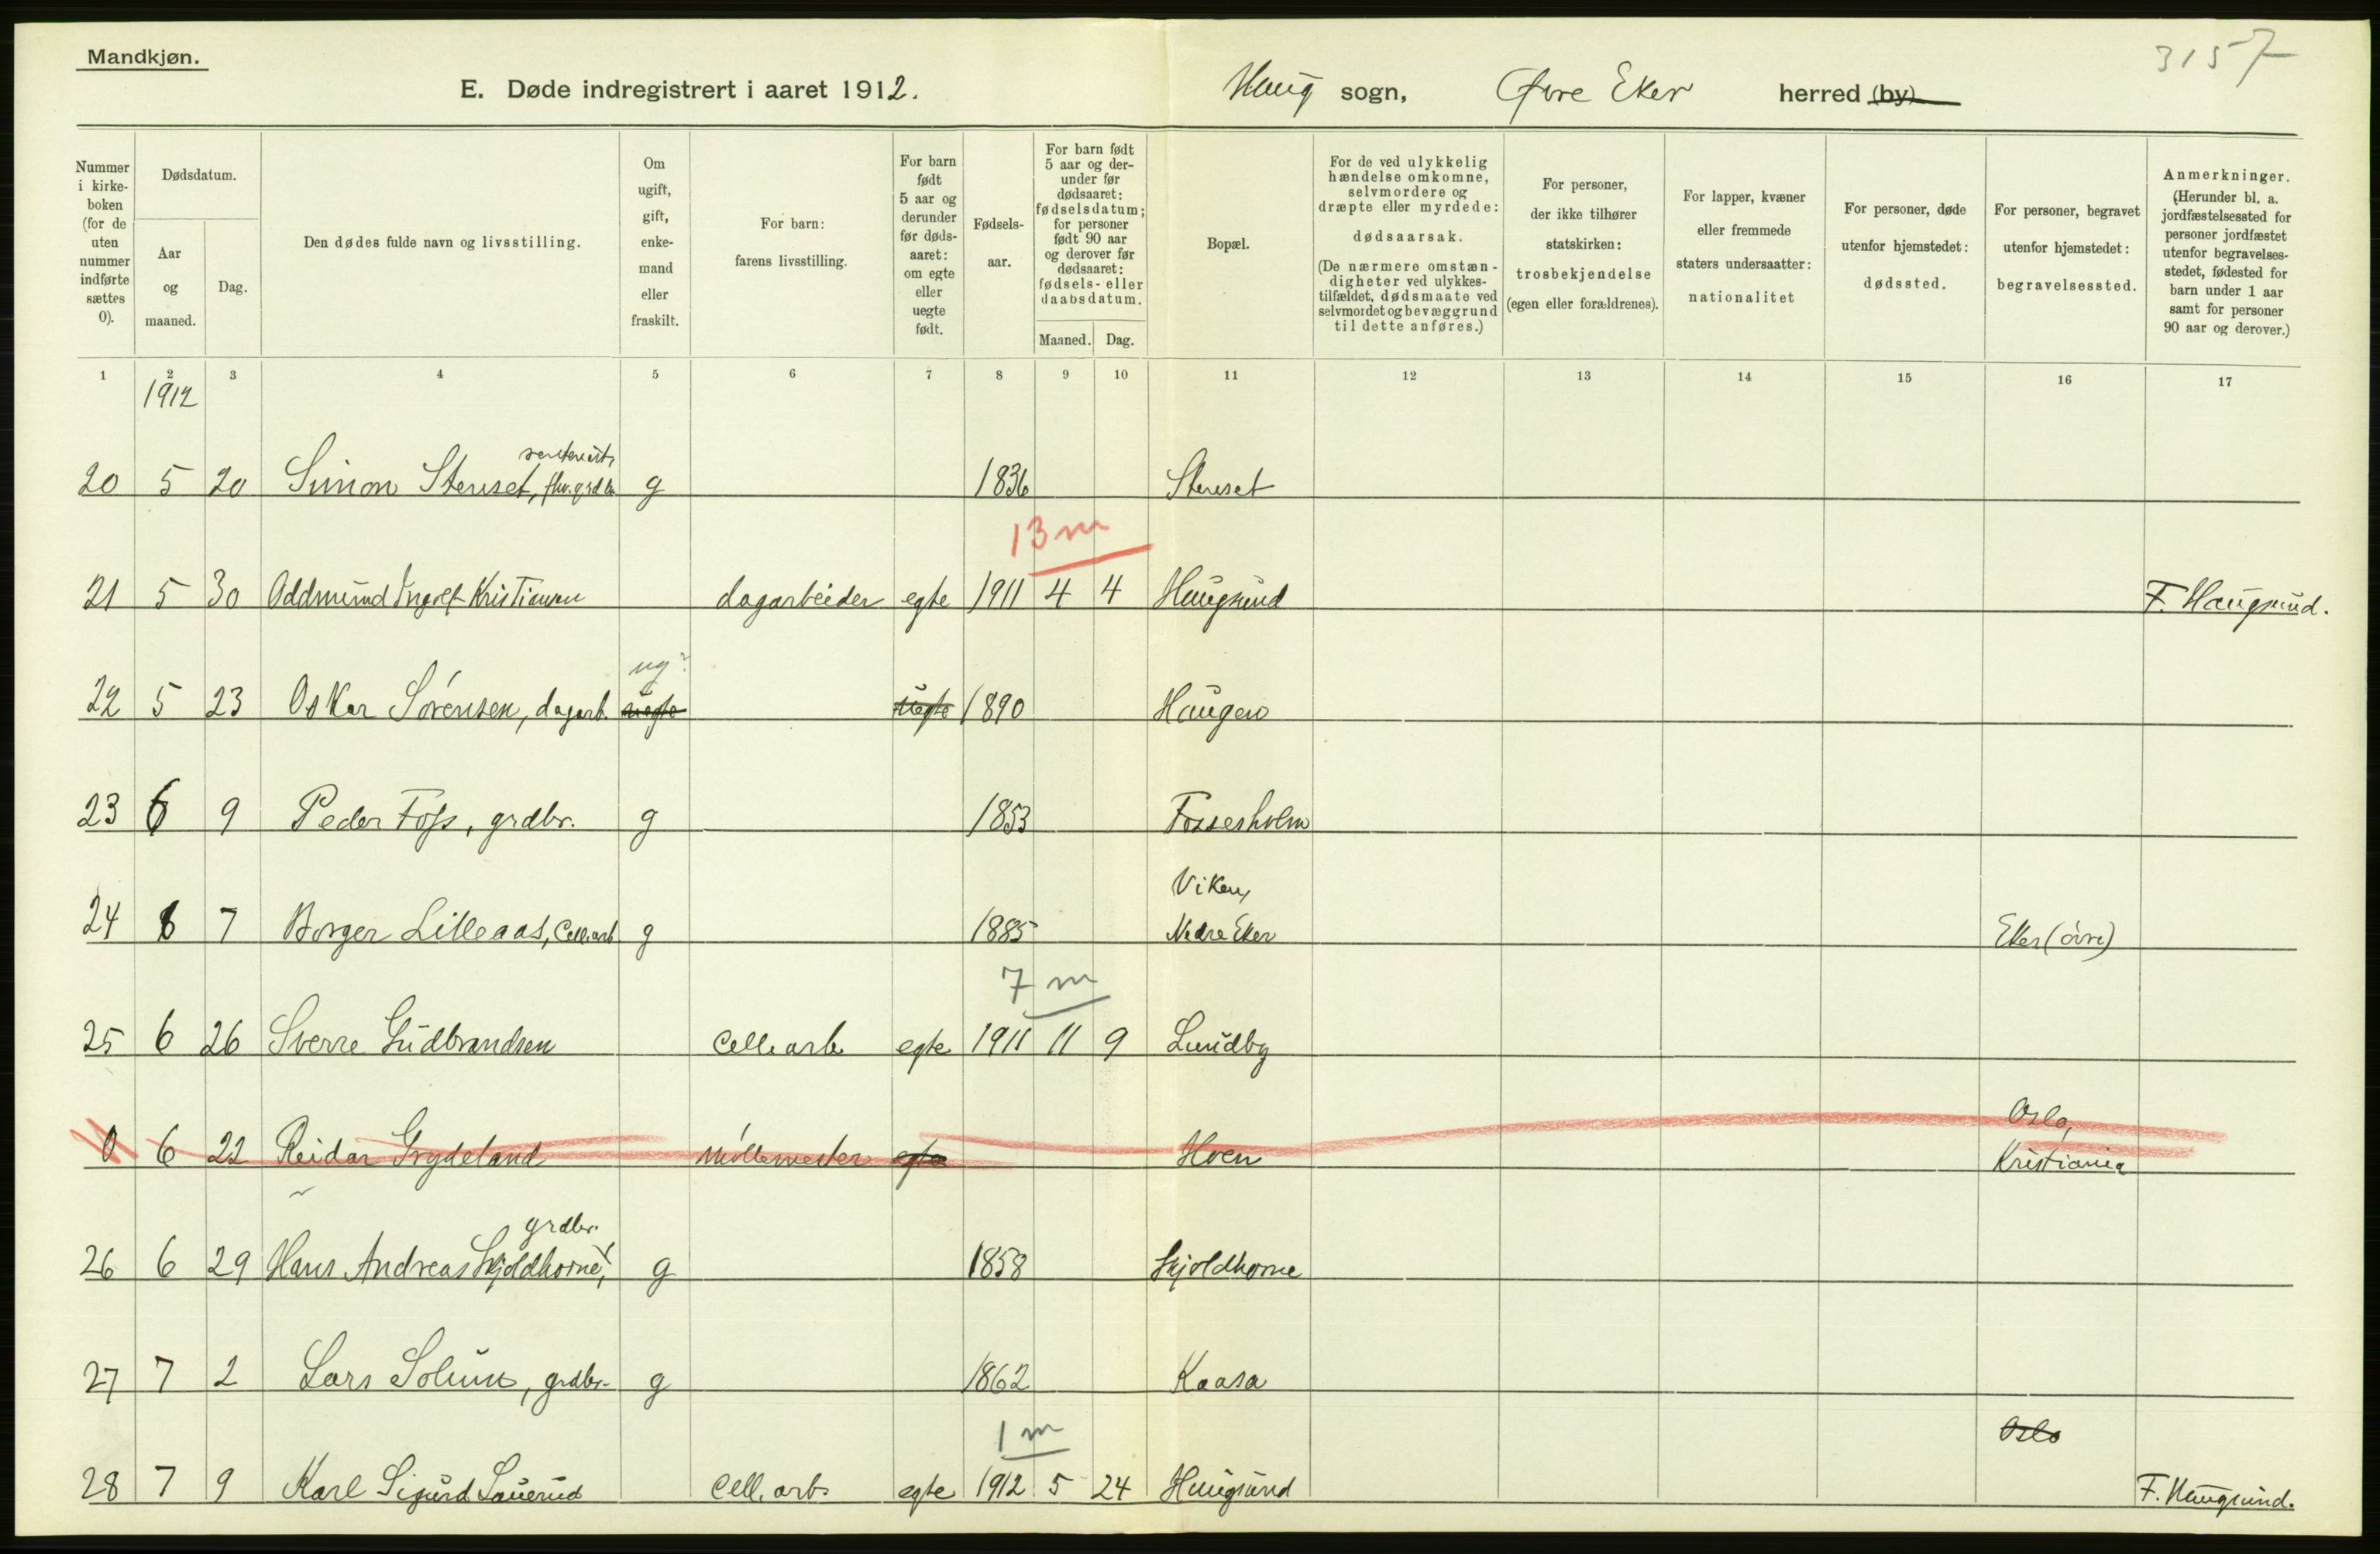 Mandkjøn.
3157
E. Døde indregistrert i aaret 1912. Haug sogn, Øvre Eker herred (by)
Nummer i kirke- boken (for de uten nummer indførte sættes 0).
Dødsdatum.
Aar og maaned.
Dag.
Den dødes fulde navn og livsstilling.
Om ugift, gift, enke- mand eller fraskilt.
For barn: farens livsstilling.
For barn født 5 aar og derunder før døds- aaret: om egte eller uegte født.
Fødsels- aar.
For barn født 5 aar og der- under før dødsaaret: fødselsdatum; for personer født 90 aar og derover før dødsaaret: fødsels- eller daabsdatum.
Maaned. Dag.
Bopæl.
For de ved ulykkelig hændelse omkomne, selvmordere og dræpte eller myrdede: dødsaarsak. (De nærmere omstæn- digheter ved ulykkes- tilfældet, dødsmaate ved selvmordet og bevæggrund til dette anføres.)
For personer, der ikke tilhører statskirken: trosbekjendelse (egen eller forældrenes).
For lapper, kvæner eller fremmede staters undersaatter: nationalitet
For personer, døde utenfor hjemstedet: dødssted.
For personer, begravet utenfor hjemstedet: begravelsessted.
Anmerkninger. (Herunder bl. a. jordfæstelsessted for personer jordfæstet utenfor begravelses- stedet, fødested for barn under 1 aar samt for personer 90 aar og derover.)
1 2 3 4 5 6 7 8 9 10 11 12 13 14 15 16 17
1912
20 5 20 Simon Stenset, fhv. grdbr. g 1836 Stenset
13 m
21 5 30 Oddmund Ingolf Kristiansen dagarbeider egte 1911 4 4 Haugsund F. Haugsund.
ug?
22 5 23 Oskar Sørensen, dagarb. uegte uegte 1890 Haugen
23 6 9 Peder Foss, grdbr. g 1853 Fossesholm
Viken,
24 6 7 Borger Lilleaas, Cell.arb g 1885 Nedre Eker Eker (øvre)
7 m
25 6 26 Sverre Gudbrandsen Cell. arb egte 1911 11 9 Lundby
Oslo,
0 6 22 Reidar Grydeland Møllemester egte Hoen Kristiania
grdbr.
26 6 29 Hans Andreas Skjoldhorne, g 1858 Skjoldhorne
27 7 2 Lars Solum, grdbr. g 1862 Kaasa
1 m Oslo
28 7 9 Karl Sigurd Sauerud Cell. arb. egte 1912 5 24 Haugsund F. Haugsund.